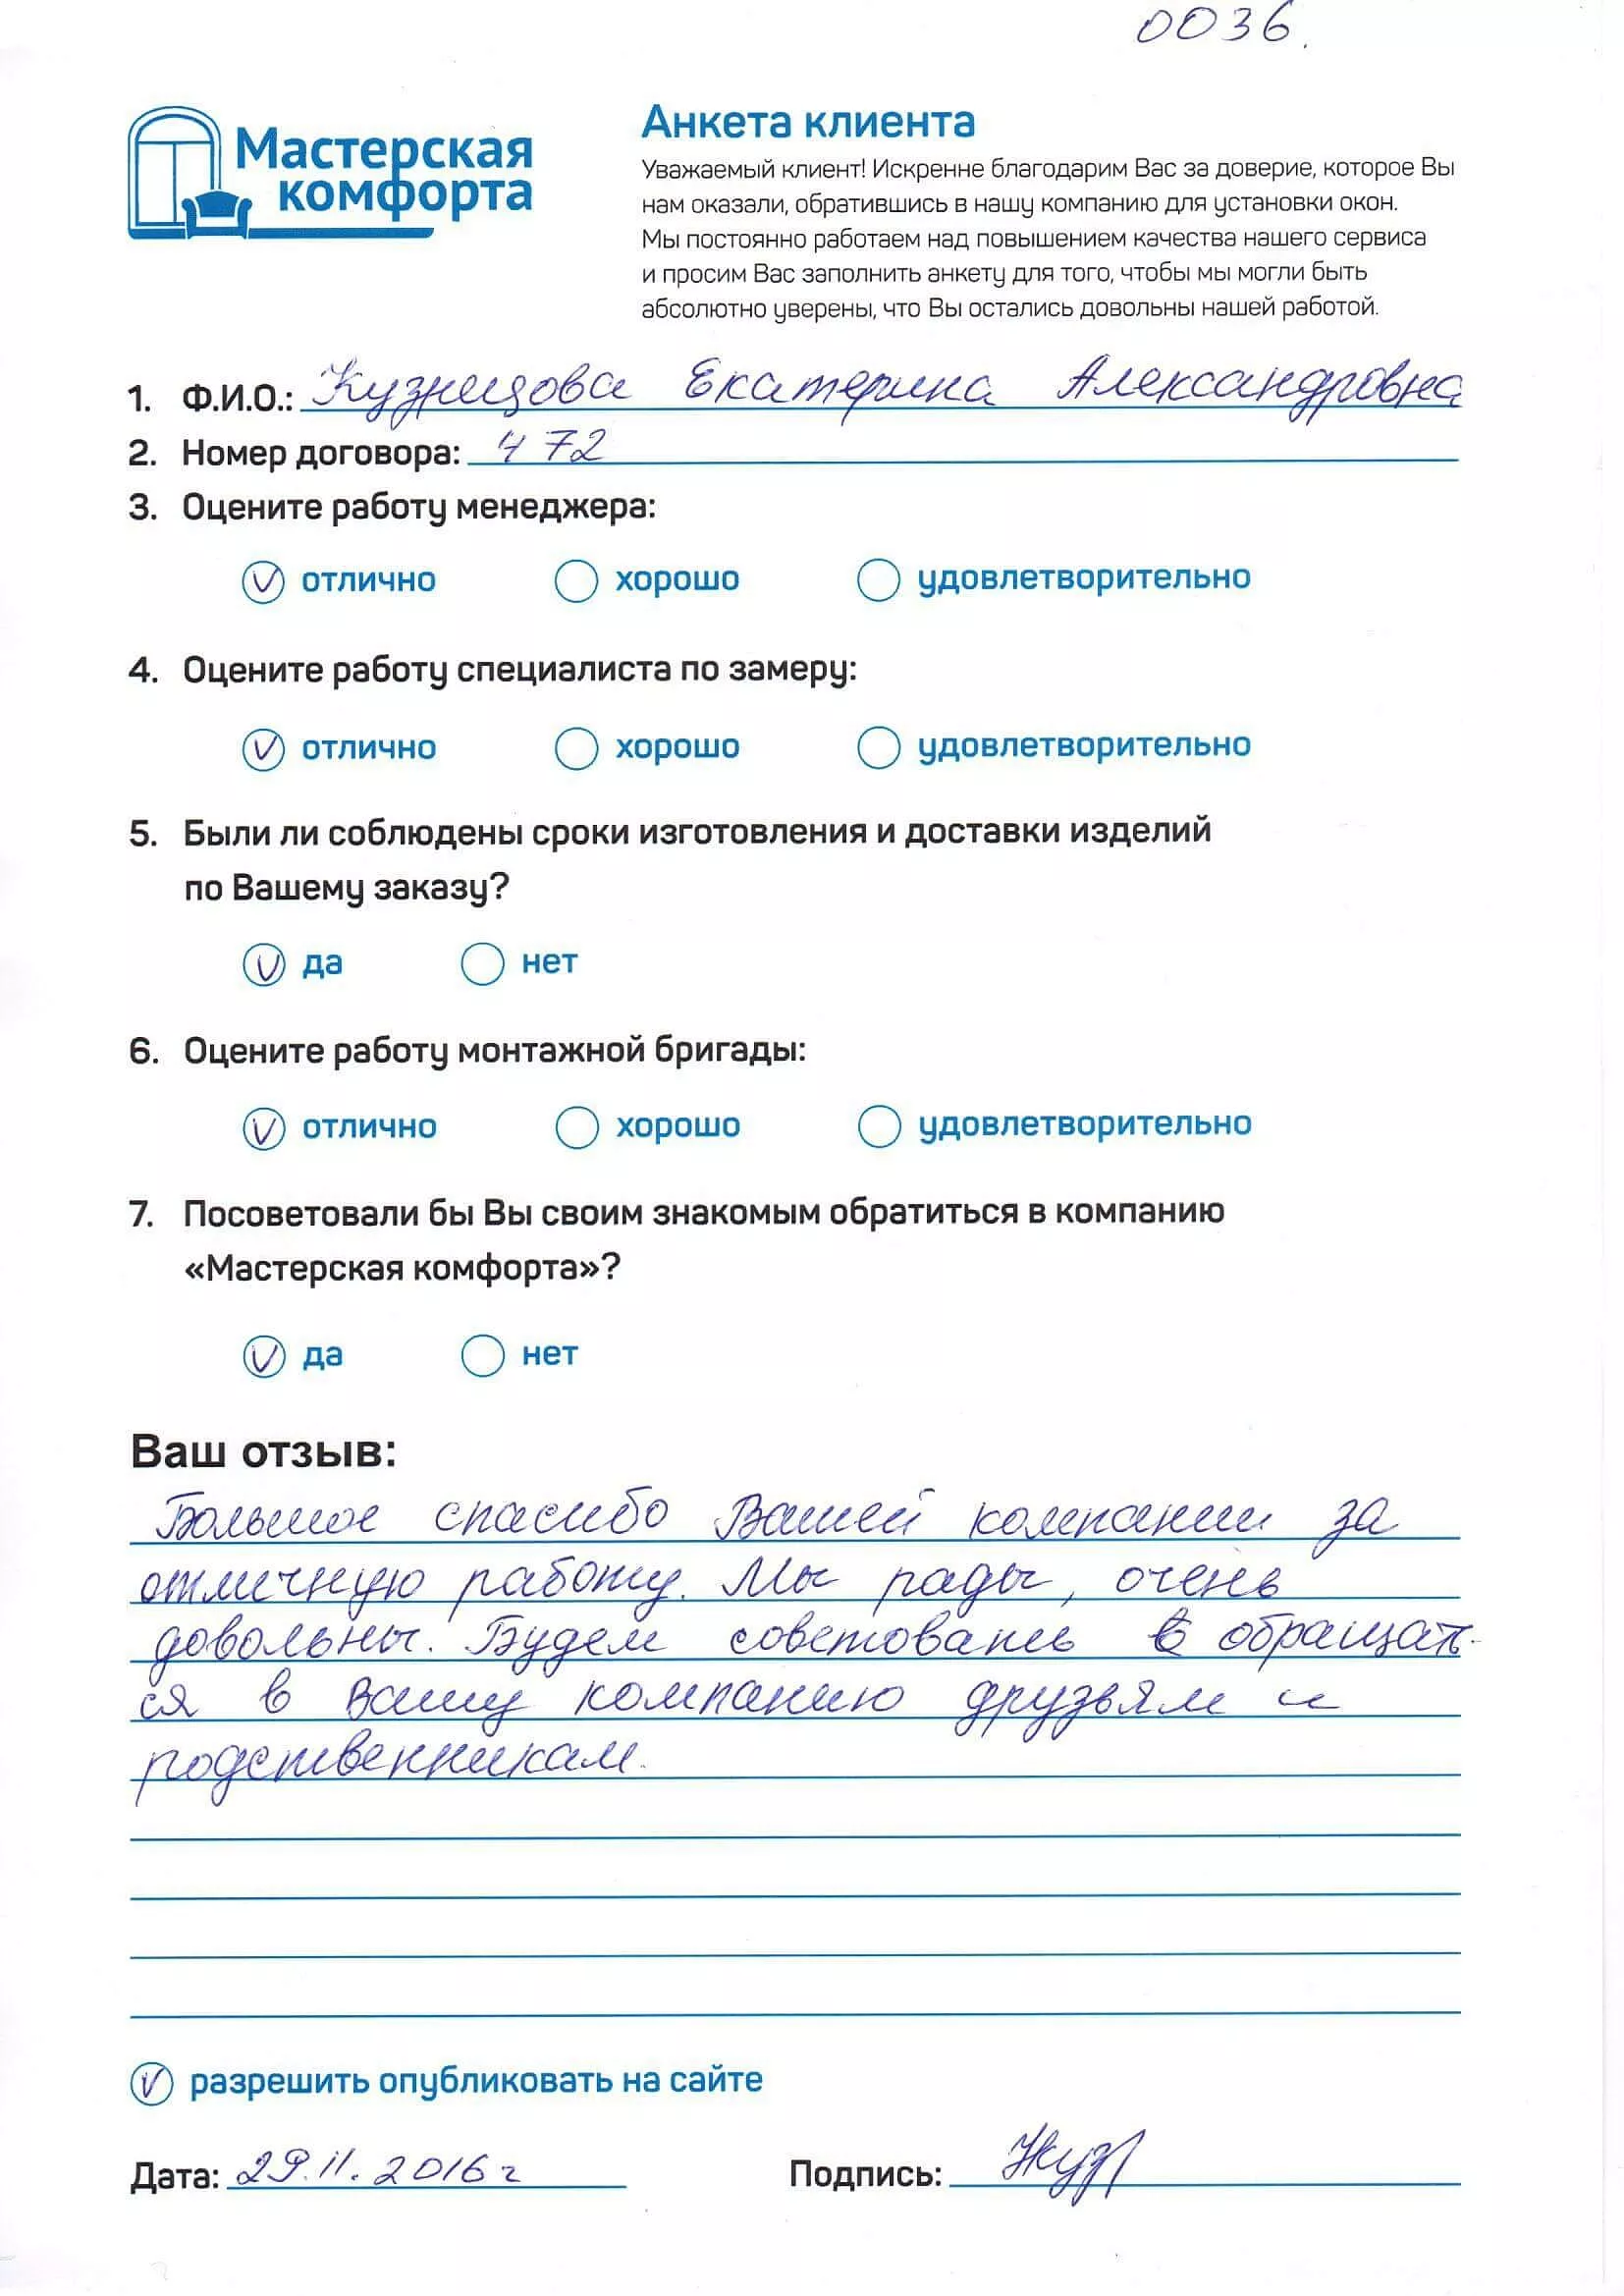 0036.
Мастерская
комфорта
Анкета клиента
Уважаемый клиент! Искренне благодарим Вас за доверие, которое Вы
нам оказали, обратившись в нашу компанию для установки окон.
Мы постоянно работаем над повышением качества нашего сервиса
и просим Вас заполнить анкету для того, чтобы мы могли быть
абсолютно уверены, что Вы остались довольны нашей работой.
1. Ф.И.О.: Кузнецова Екатерина Александровна
2. Номер договора: 472
3. Оцените работу менеджера:
отлично хорошо удовлетворительно
4. Оцените работу специалиста по замеру:
отлично хорошо удовлетворительно
5. Были ли соблюдены сроки изготовления и доставки изделий
по Вашему заказу?
да нет
6. Оцените работу монтажной бригады:
отлично хорошо удовлетворительно
7. Посоветовали бы Вы своим знакомым обратиться в компанию
«Мастерская комфорта»?
да нет
Ваш отзыв:
Большое спасибо Вашей компании за
отличную работу. Мы рады, очень
довольны. Будем советовать обращать-
ся в Вашу компанию друзьям и
родственникам.
разрешить опубликовать на сайте
Дата: 29.11.2016г Подпись: